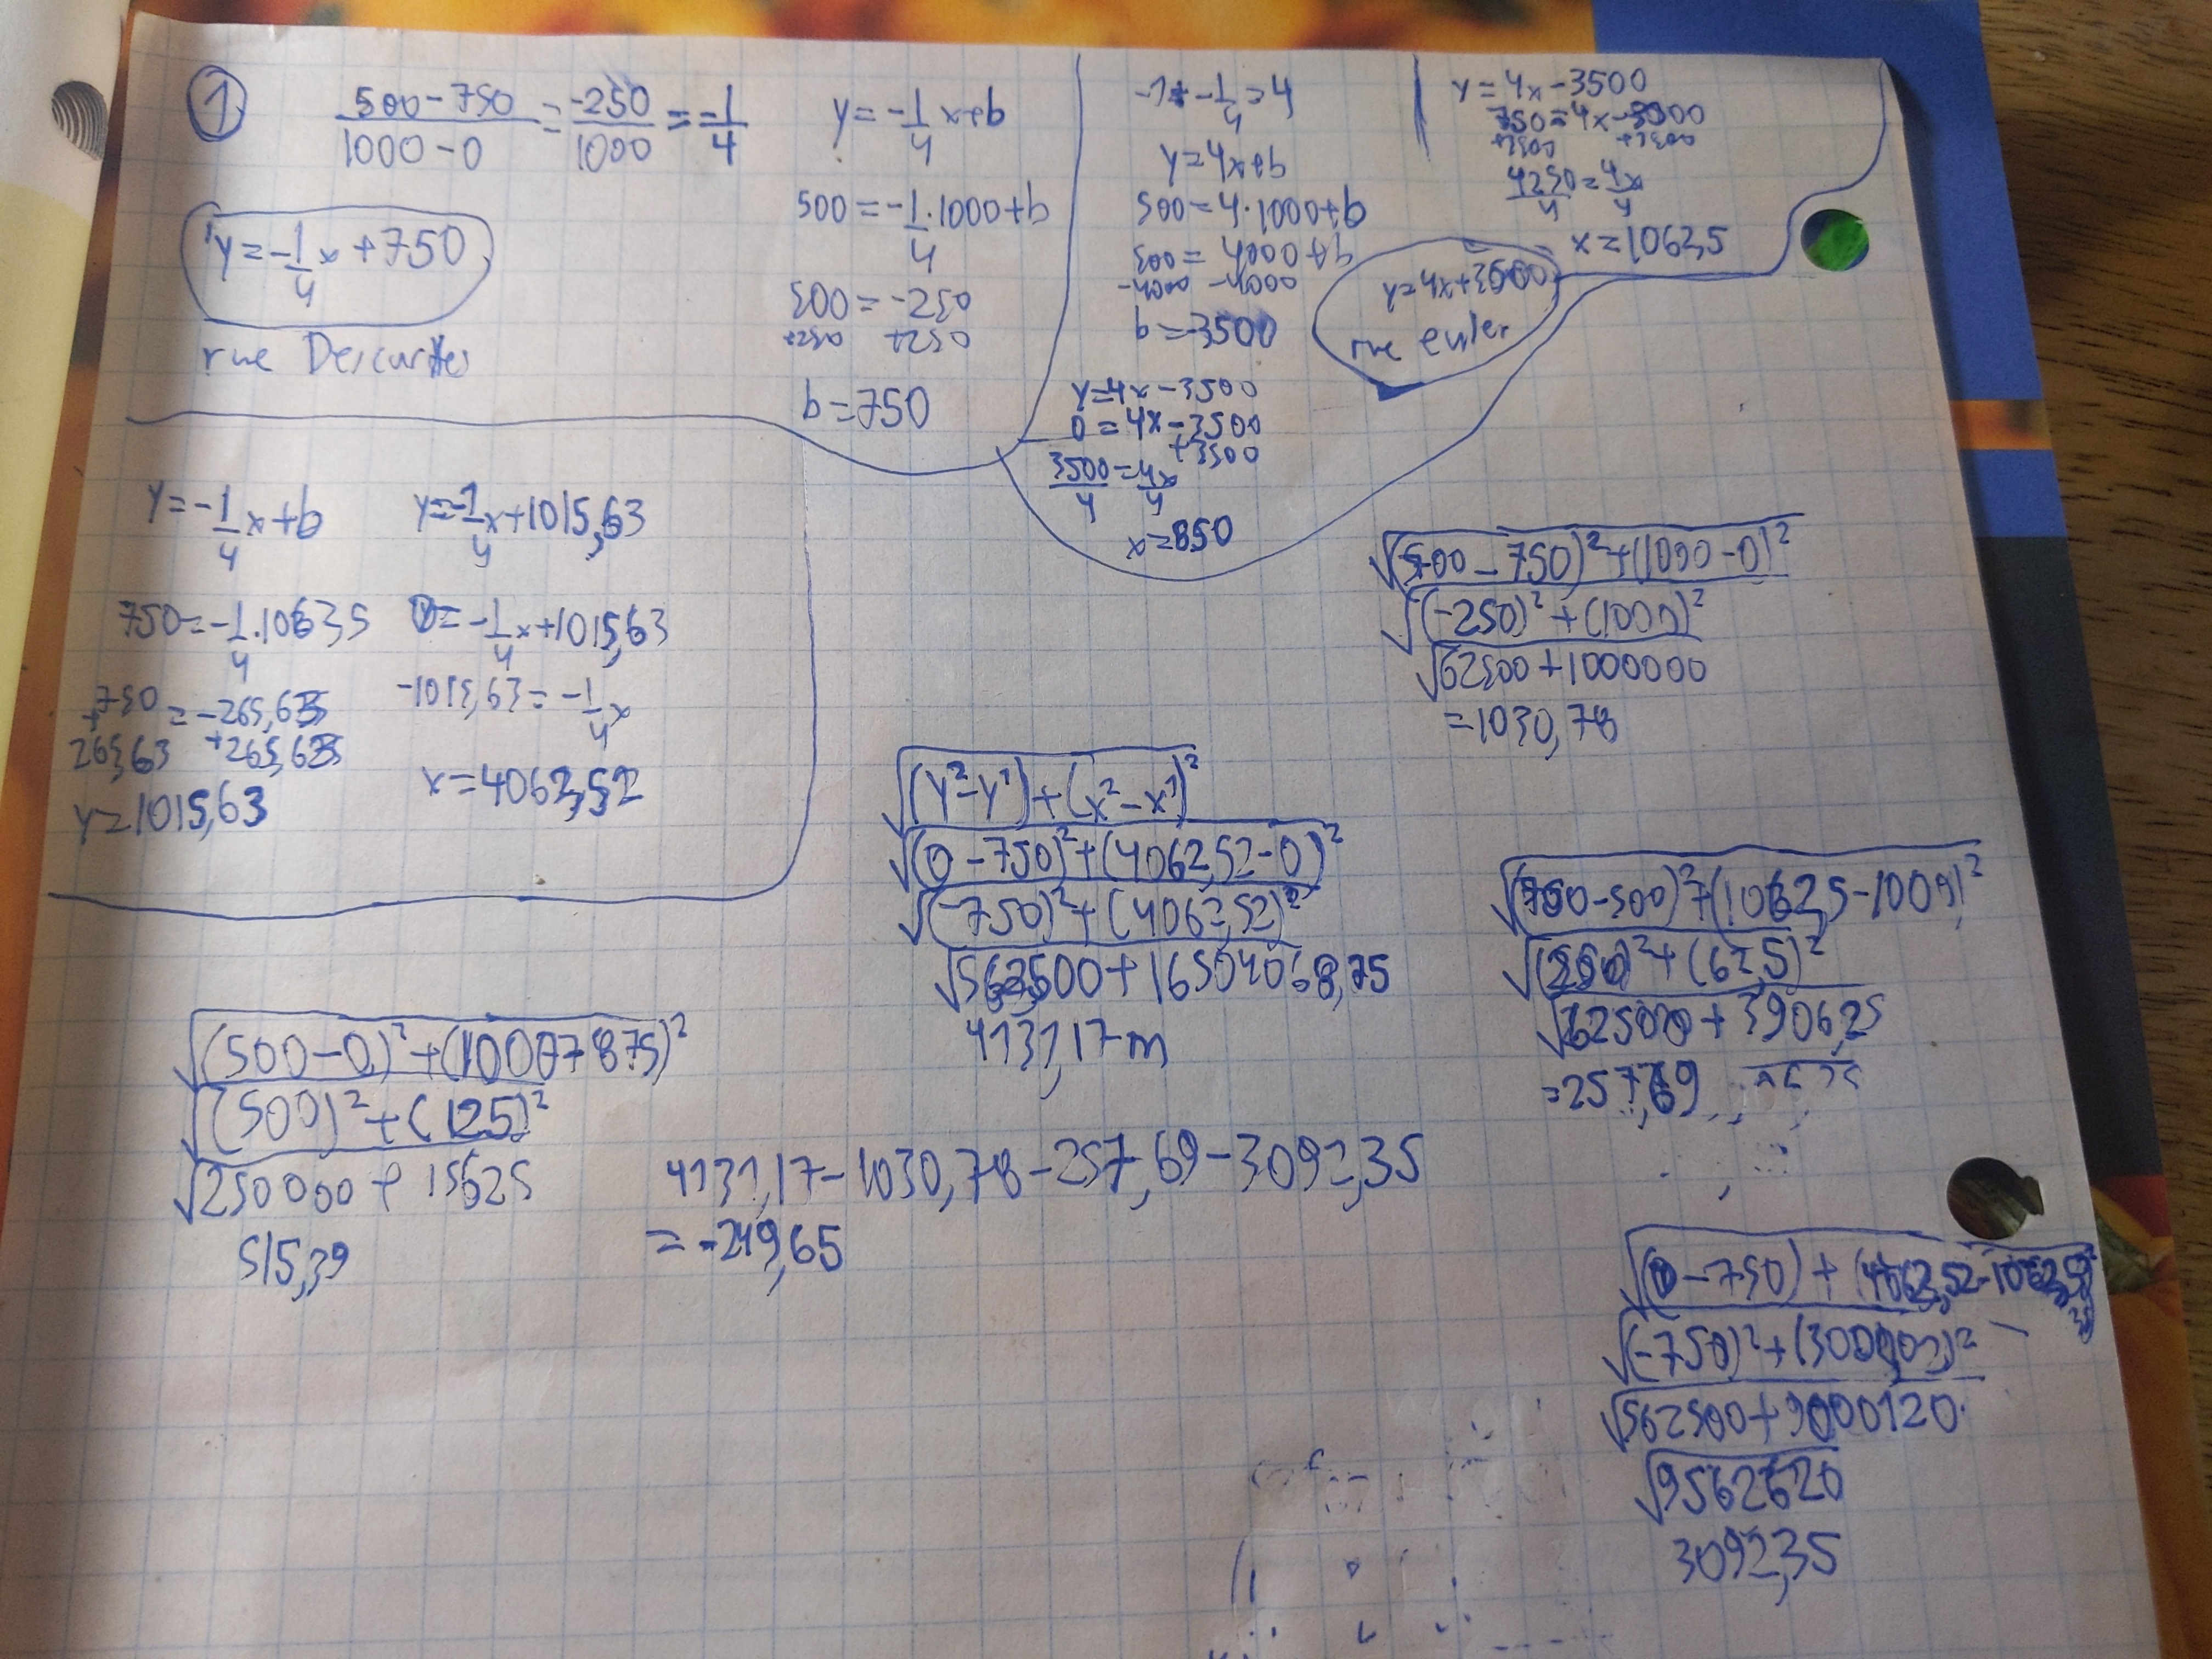 1
500-750/1000-0 = -250/1000 = -1/4
y=-1/4x+750
rue Descartes
y=-1/4x+b
500=-1/4·1000+b
500=-250
+250 +250
b=750
-1÷-1/4=4
y=4x+b
500=4·1000+b
500=4000+b
-4000 -4000
b=-3500
y=4x-3500
0=4x-3500
+3500
3500/4=4x/4
x=850
y=4x-3500
750=4x-3500
+3500 +3500
4250/4=4x/4
x=1062,5
y=4x+3500
rue euler
y=-1/4x+b
750=-1/4·1062,5
750=-265,625
+265,63 +265,625
y=1015,63
y=-1/4x+1015,63
0=-1/4x+1015,63
-1015,63=-1/4x
x=4062,52
√(500-750)²+(1000-0)²
√(-250)²+(1000)²
√62500+1000000
=1030,78
√(y²-y¹)+(x²-x¹)²
√(0-750)²+(4062,52-0)²
√(-750)²+(4062,52)²
√562500+16504068,75
4131,17 m
√(750-500)²+(1062,5-1000)²
√(250)²+(62,5)²
√62500+3906,25
=257,69
√(500-0)²+(1000-875)²
√(500)²+(125)²
√250000+15625
515,39
4131,17-1030,78-257,69-3092,35
=-249,65
√(0-750)+(4062,52-1062,5)²
√(-750)²+(3000,02)²
√562500+9000120
√9562620
3092,35